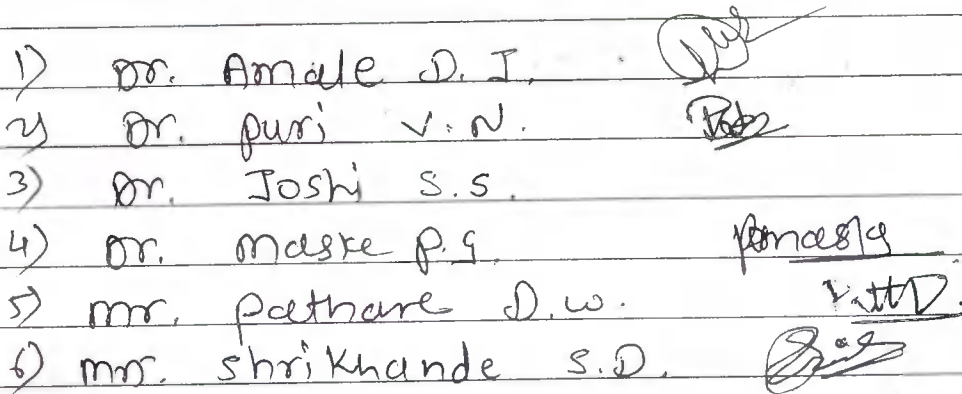 1) Dr. Amale D. I.
2) Dr. puri V. N.
3) Dr. Joshi S.S.
4) Dr. maske p.g.
5) mr. pathare D.W.
6) mr. shrikhande S.D.